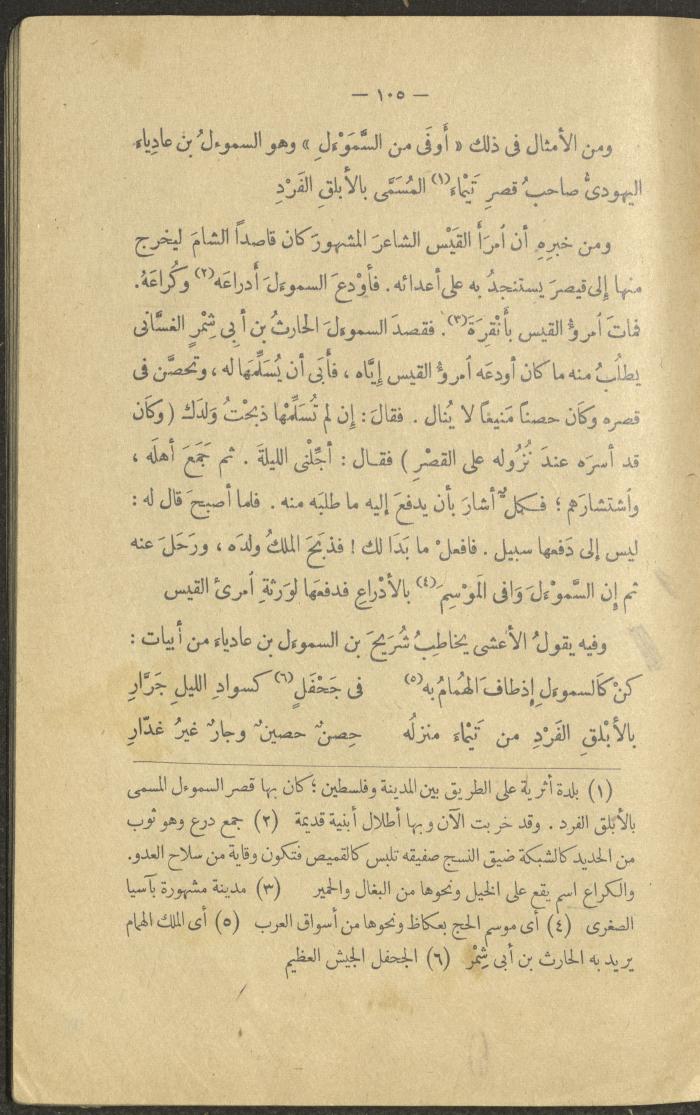 — ١٠٥ —
ومن الأمثال فى ذلك « أَوفَى من السَّمَوْءلِ » وهو السموءلُ بن عادِياء
اليهودىُّ صاحبُ قصرِ تَيْمَاء(١) المُسَمَّى بالأبلقِ الفَرْدِ
ومن خبرِهِ أن ٱمرَأَ القَيْس الشاعرَ المشهورَ كان قاصداً الشامَ ليخرج
منها إلى قيصرَ يستنجدُ به على أعدائه . فأوْدعَ السموءلَ أَدراعَه(٢) وكُراعَهُ.
فماتَ ٱمرؤُ القيس بأَنْقِرَةَ(٣). فقصدَ السموءلَ الحارثُ بن أبى شِمْرٍ الغسَّانى
يطلُبُ منه ما كان أودعَه ٱمرؤُ القيس إيَّاه ، فأَبَى أن يُسَلِّمَها له ، وتحصَّن فى
قصره وكان حصناً مَنيعاً لا يُنال . فقالَ : إن لم تُسَلِّمْها ذبحْتُ وَلدَك (وكان
قد أسرَه عندَ نُزُوله على القصْرِ ) فقـال : أجِّلْنى الليلةَ . ثم جَمَعَ أهلَه ،
وٱستشارَهم ؛ فـكلٌّ أشارَ بأن يدفعَ إليه ما طلبَه منه . فلما أصبحَ قال له :
ليس إلى دَفعها سبيل . فافعلْ ما بَدَا لك ! فذبحَ الملكُ ولدَه ، ورَحَلَ عنه
ثم إن السَّموْءلَ وَافى المَوْسِمَ(٤) بالأَدْراعِ فدفعَها لوَرثةِ ٱمرئ القيس
وفيه يقولُ الأعشى يخاطِبُ شُرَيحَ بن السموءل بن عادياء من أبيات :
كنْ كَالسموءلِ إِذطافَ الهُمامُ به(٥) فى جَحْفَلٍ(٦) كسوادِ الليلِ جَرَّارِ
بالأبْلقِ الفَرْدِ من تَيْمَاء منزلُه حِصنٌ حصينٌ وجارٌ غيرُ غدّارِ
(١) بلدة أثرية على الطريق بين المدينة وفلسطين ؛ كان بها قصر السموءل المسمى
بالأبلق الفرد . وقد خربت الآن وبها أطلال أبنية قديمة (٢) جمع درع وهو ثوب
من الحديد كالشبكة ضيق النسج صفيقه تلبس كالقميص فتكون وقاية من سلاح العدو.
والكراع اسم يقع على الخيل ونحوها من البغال والحمير (٣) مدينة مشهورة بآسيا
الصغرى (٤) أى موسم الحج بعكاظ ونحوها من أسواق العرب (٥) أى الملك الهمام
يريد به الحارث بن أبى شِمْر (٦) الجحفل الجيش العظيم